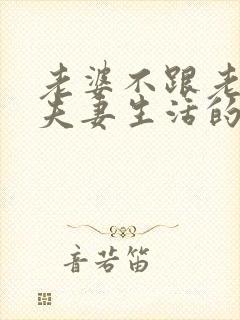 老婆不跟老
夫妻生活的
音若笛